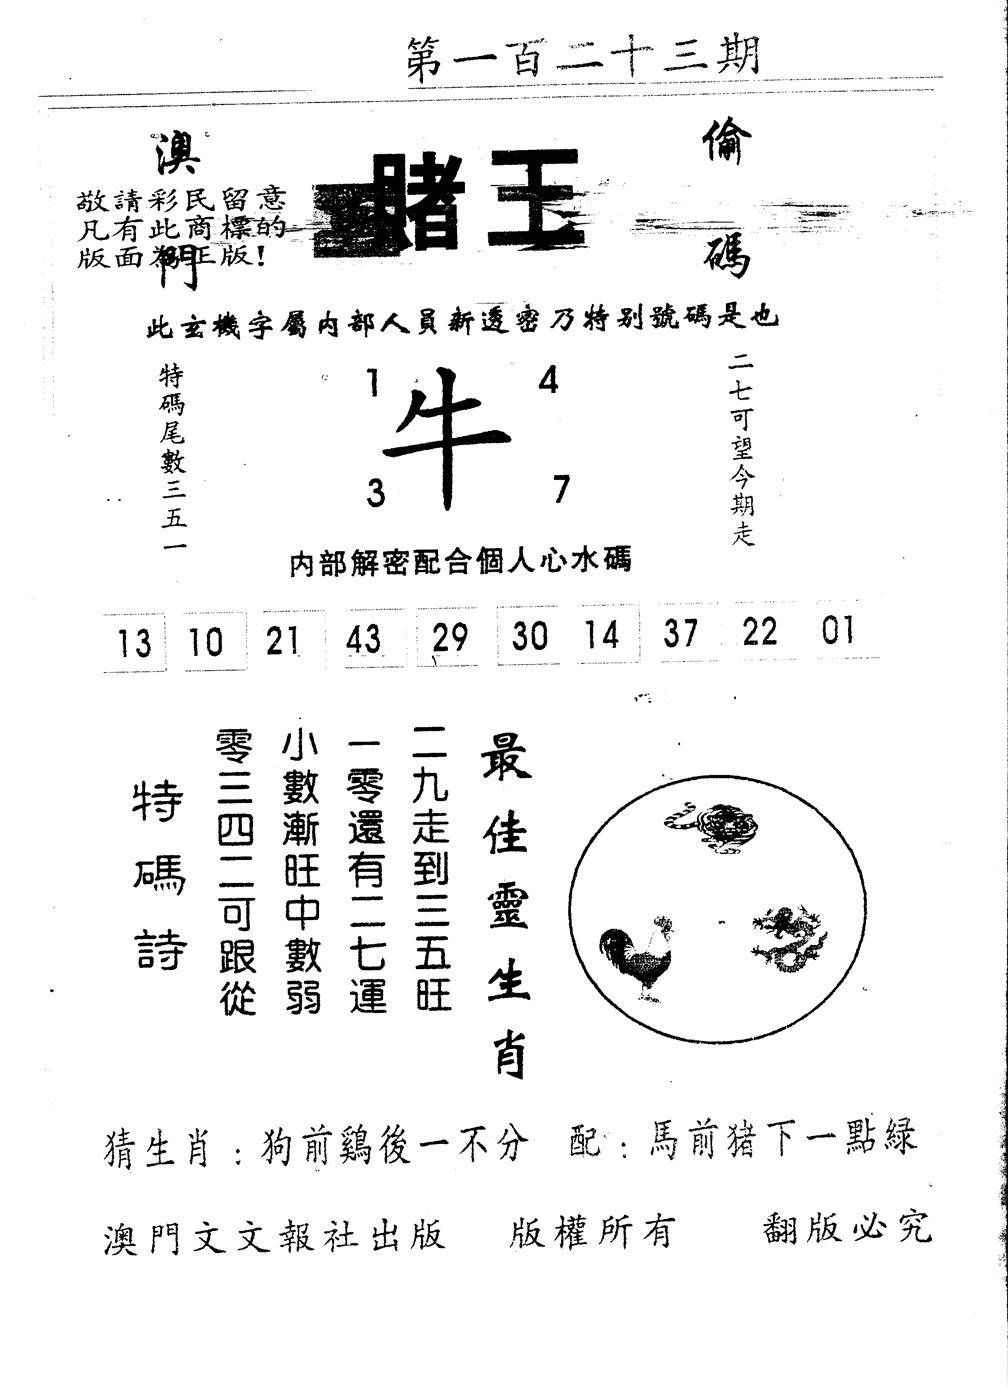 第一百二十三期
澳門
賭王
倫碼
敬請彩民留意
凡有此商標的
版面為正版!
此玄機字屬内部人員新透密乃特别號碼是也
特碼尾數三五一
1
4
牛
3
7
二七可望今期走
内部解密配合個人心水碼
13 10 21 43 29 30 14 37 22 01
最佳靈生肖
二九走到三五旺
一零還有二七運
小數漸旺中數弱
零三四二可跟從
特碼詩
猜生肖：狗前鷄後一不分 配：馬前猪下一點緑
澳門文文報社出版 版權所有 翻版必究